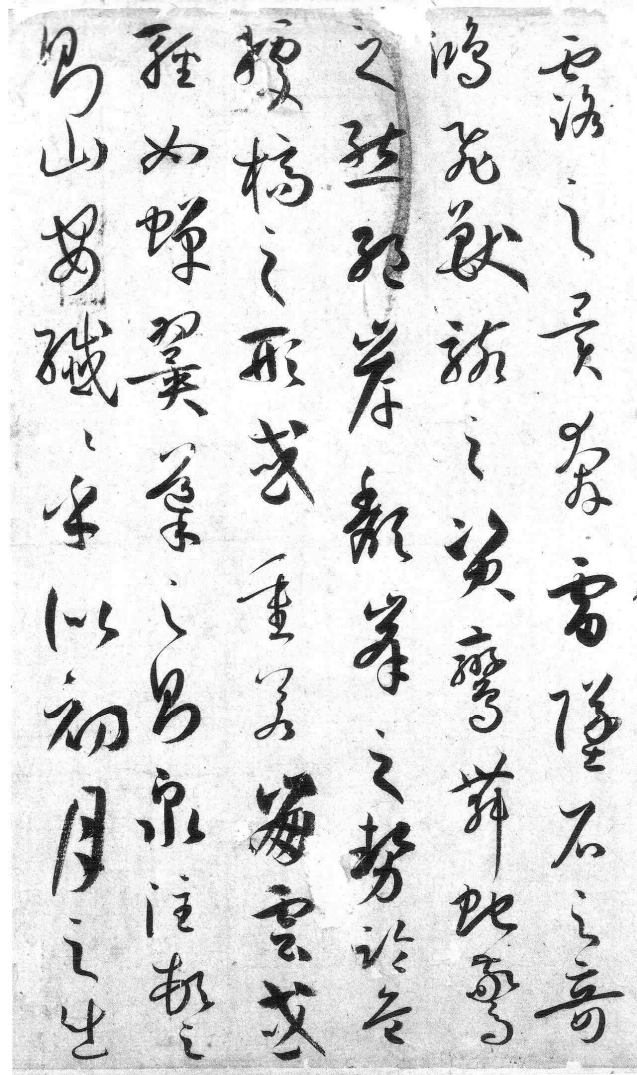 露之異奔雷墜石之奇
鴻飛獸駭之資鸞舞蛇驚
之態絕岸頹峯之勢臨危
據槁之形或重若崩雲或
輕如蟬翼導之則泉注頓之
則山安纖纖乎似初月之出